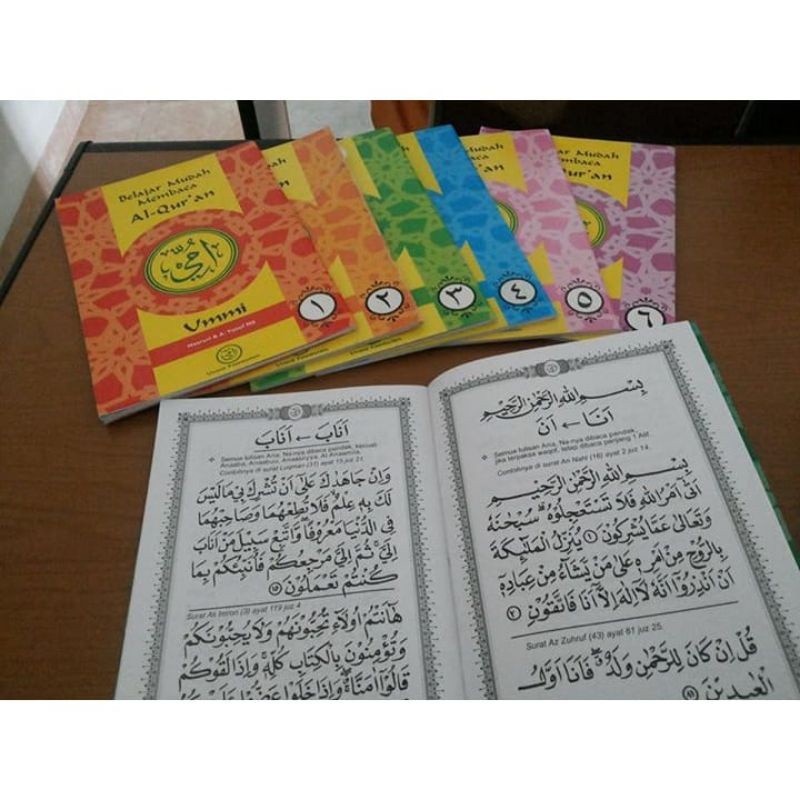 Belajar Mudah
Membaca
Al-Qur'an
أمي
Ummi
Masruri & A. Yusuf MS
Ummi Foundation
١
٢
٣
٤
٥
٦
Belajar Mudah
Membaca
Qur'an
اَنَابَ ← اَنَابَ
Semua tulisan Ana, Na-nya dibaca pendak, Kecuali
Anaaba, Anaabuu, Anaasiyya, Al Anaamila,
Contohnya di surat Luqman (31) ayat 15 juz 21.
وَاِنْ جَاهَدٰكَ عَلٰٓى اَنْ تُشْرِكَ بِيْ مَا لَيْسَ
لَكَ بِهٖ عِلْمٌ فَلَا تُطِعْهُمَا وَصَاحِبْهُمَا
فِى الدُّنْيَا مَعْرُوْفًا وَّاتَّبِعْ سَبِيْلَ مَنْ اَنَابَ
اِلَيَّ ثُمَّ اِلَيَّ مَرْجِعُكُمْ فَاُنَبِّئُكُمْ بِمَا
كُنْتُمْ تَعْمَلُوْنَ ١٥
Surat Ali Imron (3) ayat 119 juz 4
هٰٓاَنْتُمْ اُولَآءِ تُحِبُّوْنَهُمْ وَلَا يُحِبُّوْنَكُمْ
وَتُؤْمِنُوْنَ بِالْكِتٰبِ كُلِّهٖ وَاِذَا لَقُوْكُمْ
قَالُوْٓا اٰمَنَّا وَاِذَا خَلَوْا عَضُّوْا عَلَيْكُمُ
بِسْمِ اللهِ الرَّحْمٰنِ الرَّحِيْمِ
اَنَا ← اَنَ
Semua tulisan Ana, Na-nya dibaca pandak,
jika terpaksa waqof, tetap dibaca panjang 1 Alif
Contohnya di surat An Nahl (16) ayat 2 juz 14.
بِسْمِ اللهِ الرَّحْمٰنِ الرَّحِيْمِ
اَتٰٓى اَمْرُ اللهِ فَلَا تَسْتَعْجِلُوْهُ سُبْحٰنَهٗ
وَتَعَالٰى عَمَّا يُشْرِكُوْنَ ١ يُنَزِّلُ الْمَلٰٓئِكَةَ
بِالرُّوْحِ مِنْ اَمْرِهٖ عَلٰى مَنْ يَّشَآءُ مِنْ عِبَادِهٖٓ
اَنْ اَنْذِرُوْٓا اَنَّهٗ لَآ اِلٰهَ اِلَّآ اَنَا فَاتَّقُوْنِ ٢
Surat Az Zuhruf (43) ayat 81 juz 25.
قُلْ اِنْ كَانَ لِلرَّحْمٰنِ وَلَدٌ فَاَنَا۠ اَوَّلُ
الْعٰبِدِيْنَ ٨١